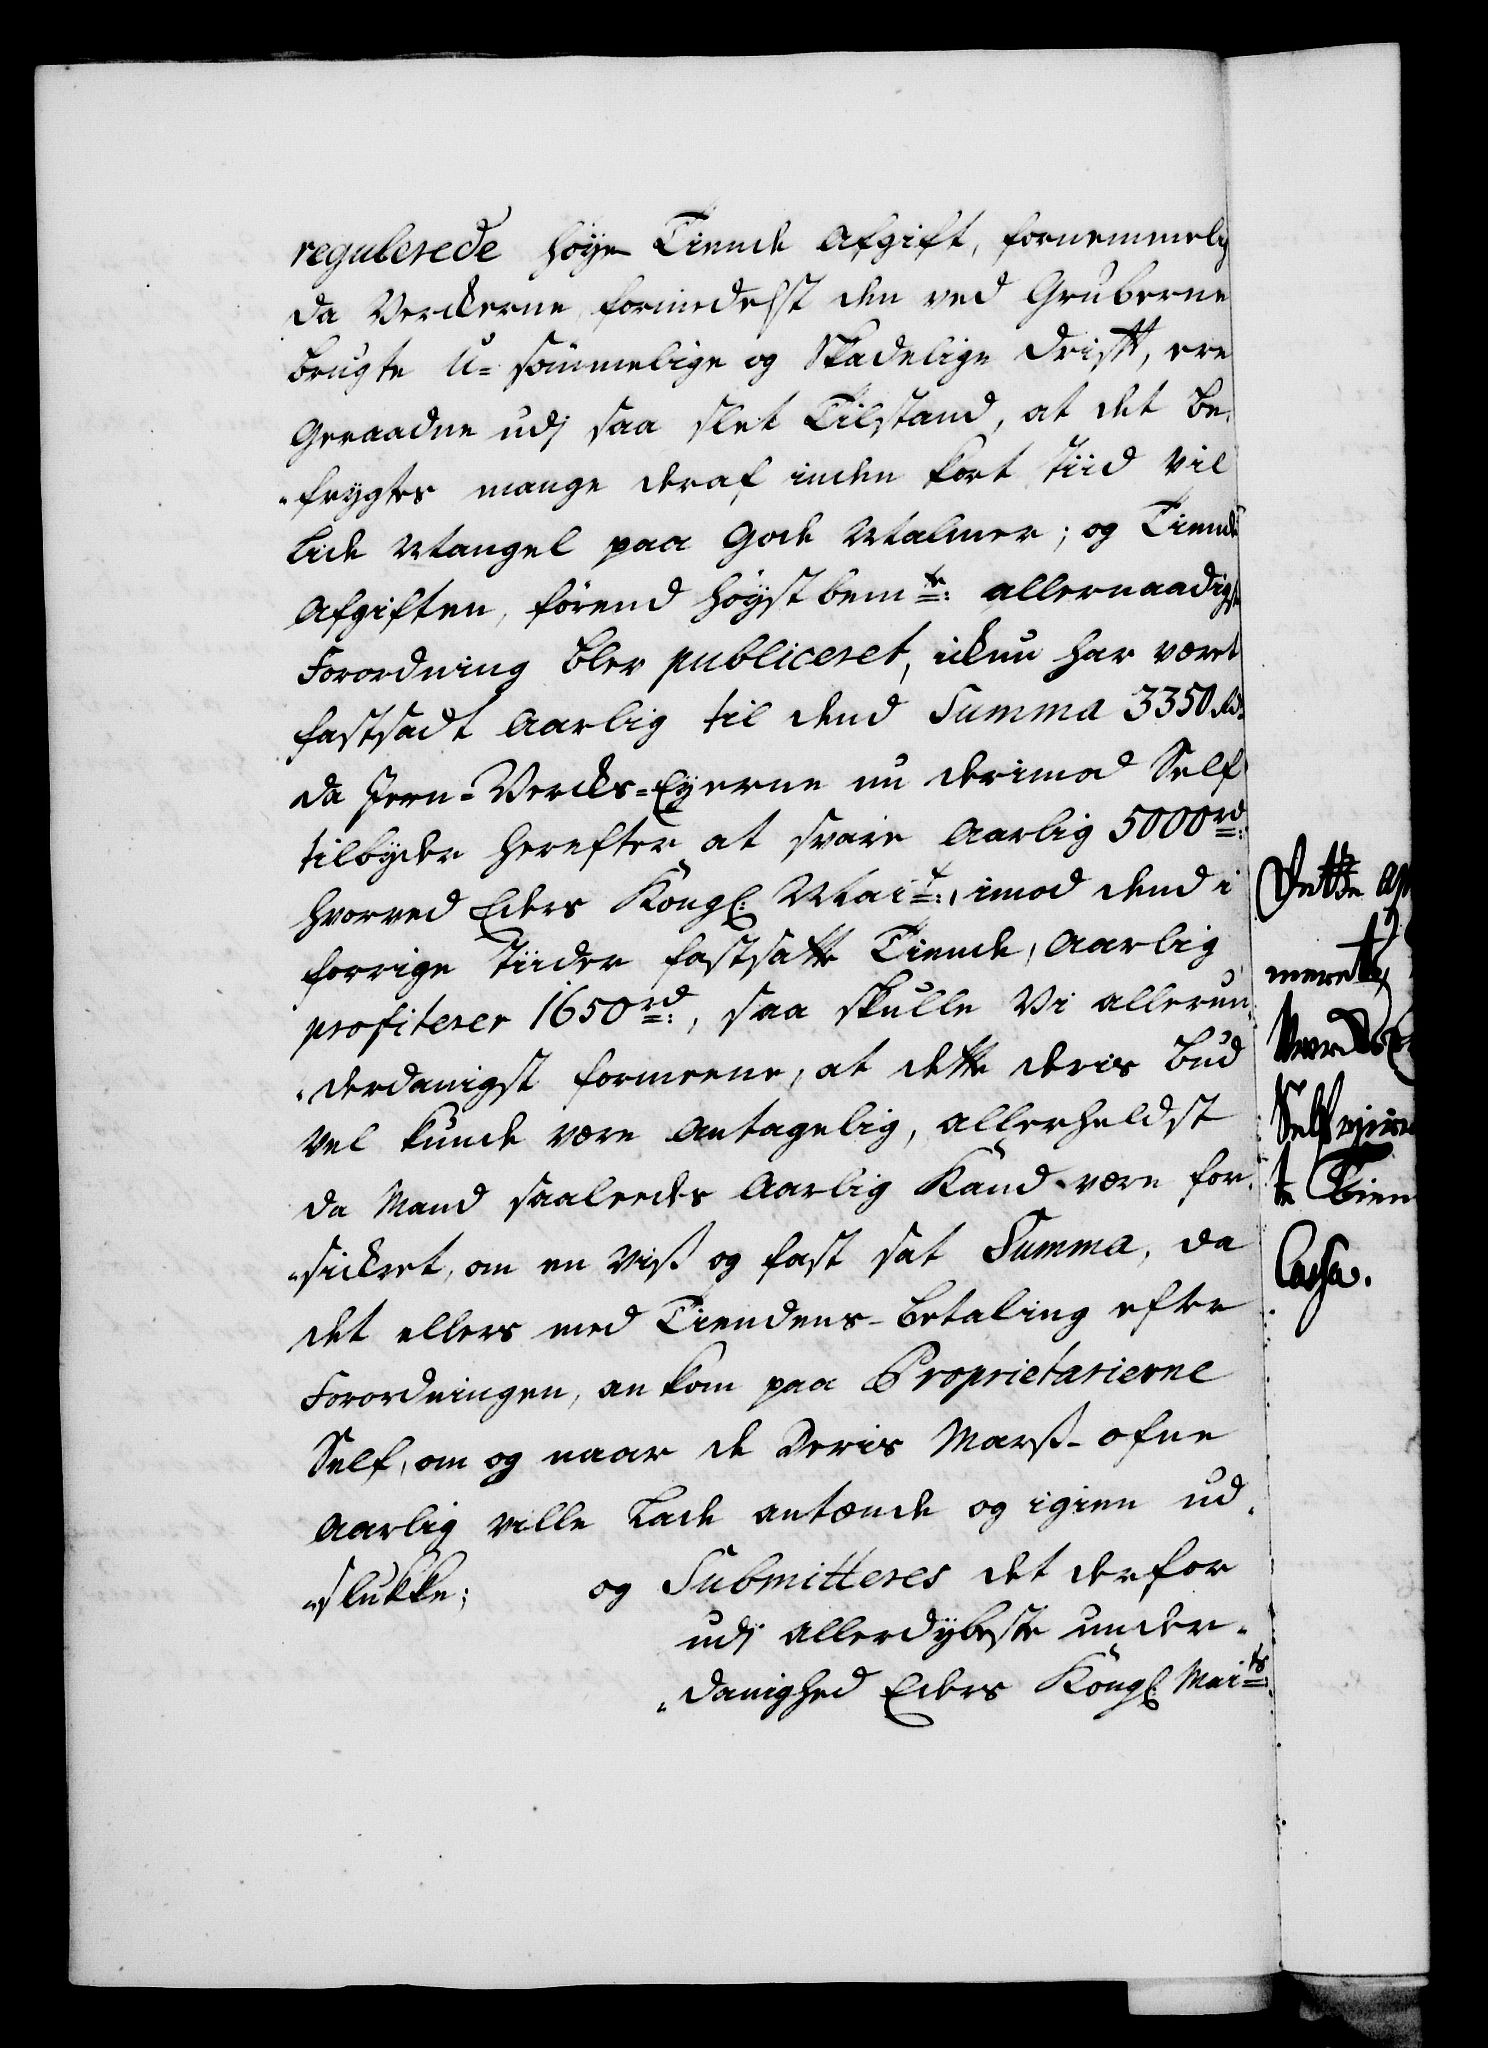 regulerede høye Tiende Afgift, fornemmelig
da Verckerne formedelst den ved Gruberne
brugte U-sømmelige og Skadelige Drifft, ere
Geraadne udj saa slet Tilstand, at det be-
-frygtes mange deraf inden kort Tiid vil
Lide Mangel paa Gode Malmer; og Tiende
Afgiften, førend høystbemte: allernaadigste
Forordning blev publiceret, ickun har været
fastsadt Aarlig til dend Summa 3350 Rd:
da Jern-Vercks-Eyerne nu derimod Self
tilbyder herefter at svare Aarlig 5000 rd:
hvorved Eders Kongl: Mait:, imod dend i
forrige Tiider fastsatte Tiende, Aarlig
profiterer 1650 rd:, saa skulle Vi allerun-
-derdanigst formeene, at dette deris bud
vel kunde være Antagelig, allerheldst
da Mand saaleedes Aarlig Kand være for-
-sickret, om en viß og fast sat Summa, da
det ellers med Tiendens-betaling efter
Forordningen, an kom paa Proprietarierne
Self, om og naar de Deris Marß-ofne
Aarlig ville Lade antænde og igien ud-
-slukke; og Submitteres det derfor
udj allerdybeste under-
-danighed Eders Kongl: Maits:
Dette
Vercks
Self
te Tien
Cassa.